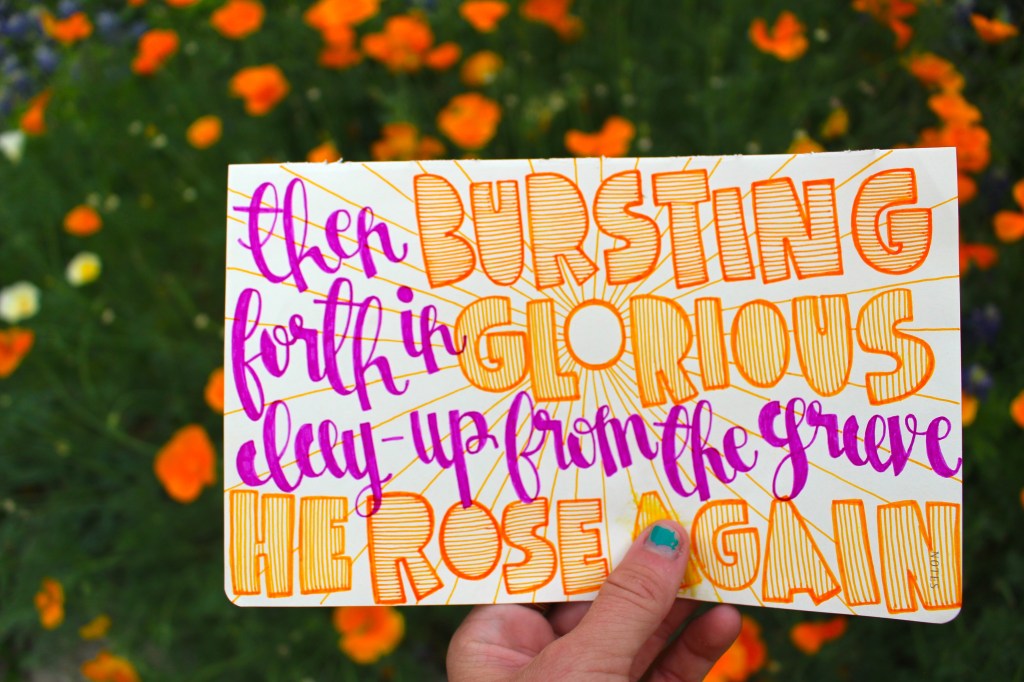 then BURSTING
forth in GLORIOUS
day-up from the grave
HE ROSE AGAIN
NOTES